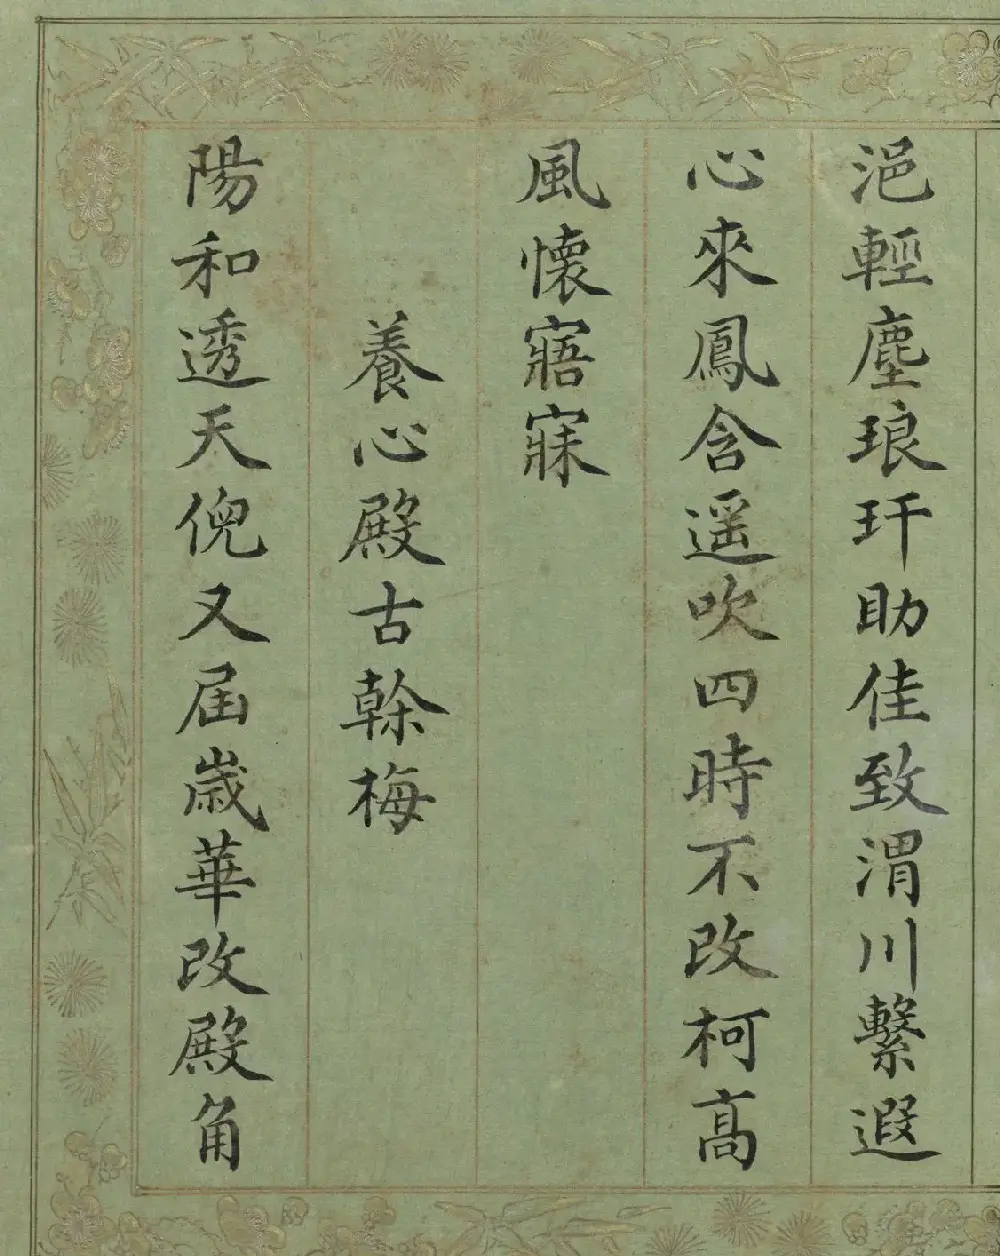 浥輕塵琅玕助佳致渭川繫遐
心來鳳含遥吹四時不改柯高
風懷寤寐
養心殿古榦梅
陽和透天倪又屆歲華改殿角